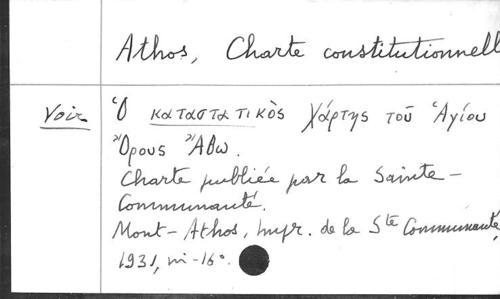 Athos, Charte constitutionnell
Voir Ὁ καταστατικὸς Χάρτης τοῦ Ἁγίου
Ὄρους Ἄθω.
Charte publiée par la Sainte-
Communauté.
Mont-Athos, Impr. de la Ste Communauté,
1931, in-16°.